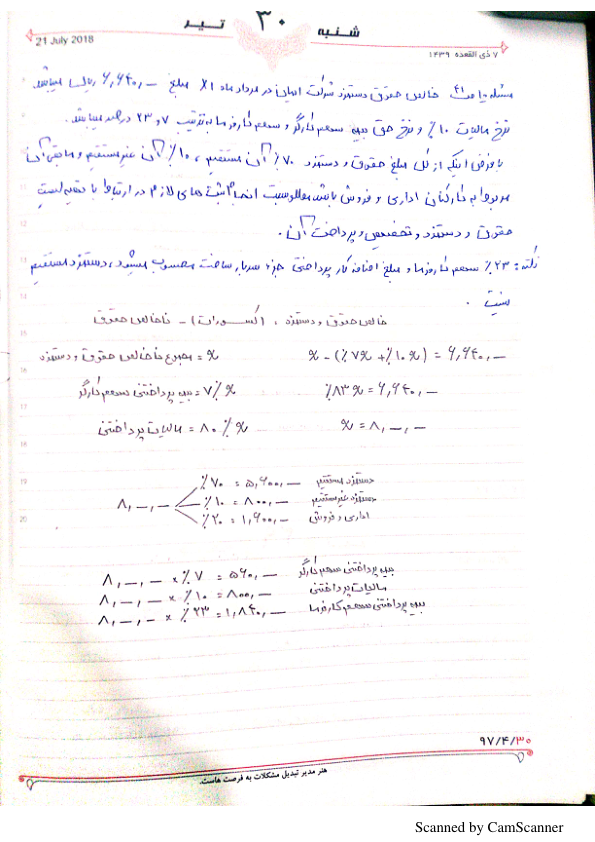 شنبه ۳۰ تیـر
21 July 2018
۷ ذی القعده ۱۴۳۹
خالص حقوق دستمزد شرکت ایمان در مرداد ماه X۱ مبلغ ۶,۶۴۰,— ریال میباشد.
نرخ مالیات ۱۰٪ و نرخ حق بیمه سهم کارگر و سهم کارفرما به ترتیب ۷ و ۲۳ درصد میباشد.
با فرض اینکه از کل مبلغ حقوق و دستمزد ۷۰٪ آن مستقیم، ۱۰٪ آن غیر مستقیم و مابقی آن
مربوط به کارکنان اداری و فروش باشد مطلوبست انجام ثبت های لازم در ارتباط با
حقوق و دستمزد و تخصیص و پرداخت آن.
نکته: ۲۳٪ سهم کارفرما و مبلغ اضافه کار پرداختی جزء سربار ساخت محسوب میشود، دستمزد مستقیم
نیست.
خالص حقوق و دستمزد = (کسورات) - ناخالص حقوق
x - (٪۷x + ٪۱۰x) = ۶,۶۴۰,—
x = مجموع ناخالص حقوق و دستمزد
٪۸۳x = ۶,۶۴۰,—
۷٪x = بیمه پرداختنی سهم کارگر
x = ۸,—,—
x٪ = مالیات پرداختنی
٪۷۰ = ۵,۶۰۰,— دستمزد مستقیم
۸,—,— ٪۱۰ = ۸۰۰,— دستمزد غیر مستقیم
٪۲۰ = ۱,۶۰۰,— اداری و فروش
۸,—,— × ٪۷ = ۵۶۰,— بیمه پرداختنی سهم کارگر
۸,—,— × ٪۱۰ = ۸۰۰,— مالیات پرداختنی
۸,—,— × ٪۲۳ = ۱,۸۴۰,— بیمه پرداختنی سهم کارفرما
۹۷/۴/۳۰
هنر مدیر تبدیل مشکلات به فرصت هاست.
Scanned by CamScanner